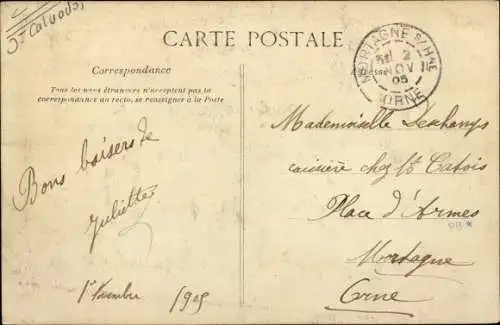 CARTE POSTALE
Correspondance
Tous les pays étrangers n'acceptent pas la
correspondance au recto, se renseigner à la Poste
MORTAGNE S/HNE
2
NOV
05
ORNE
Adresse
Mademoiselle Deschamps
caissière chez Mr Catois
Place d'Armes
Mortagne
Orne
Bons baisers de
Juliette
1er Novembre 1905